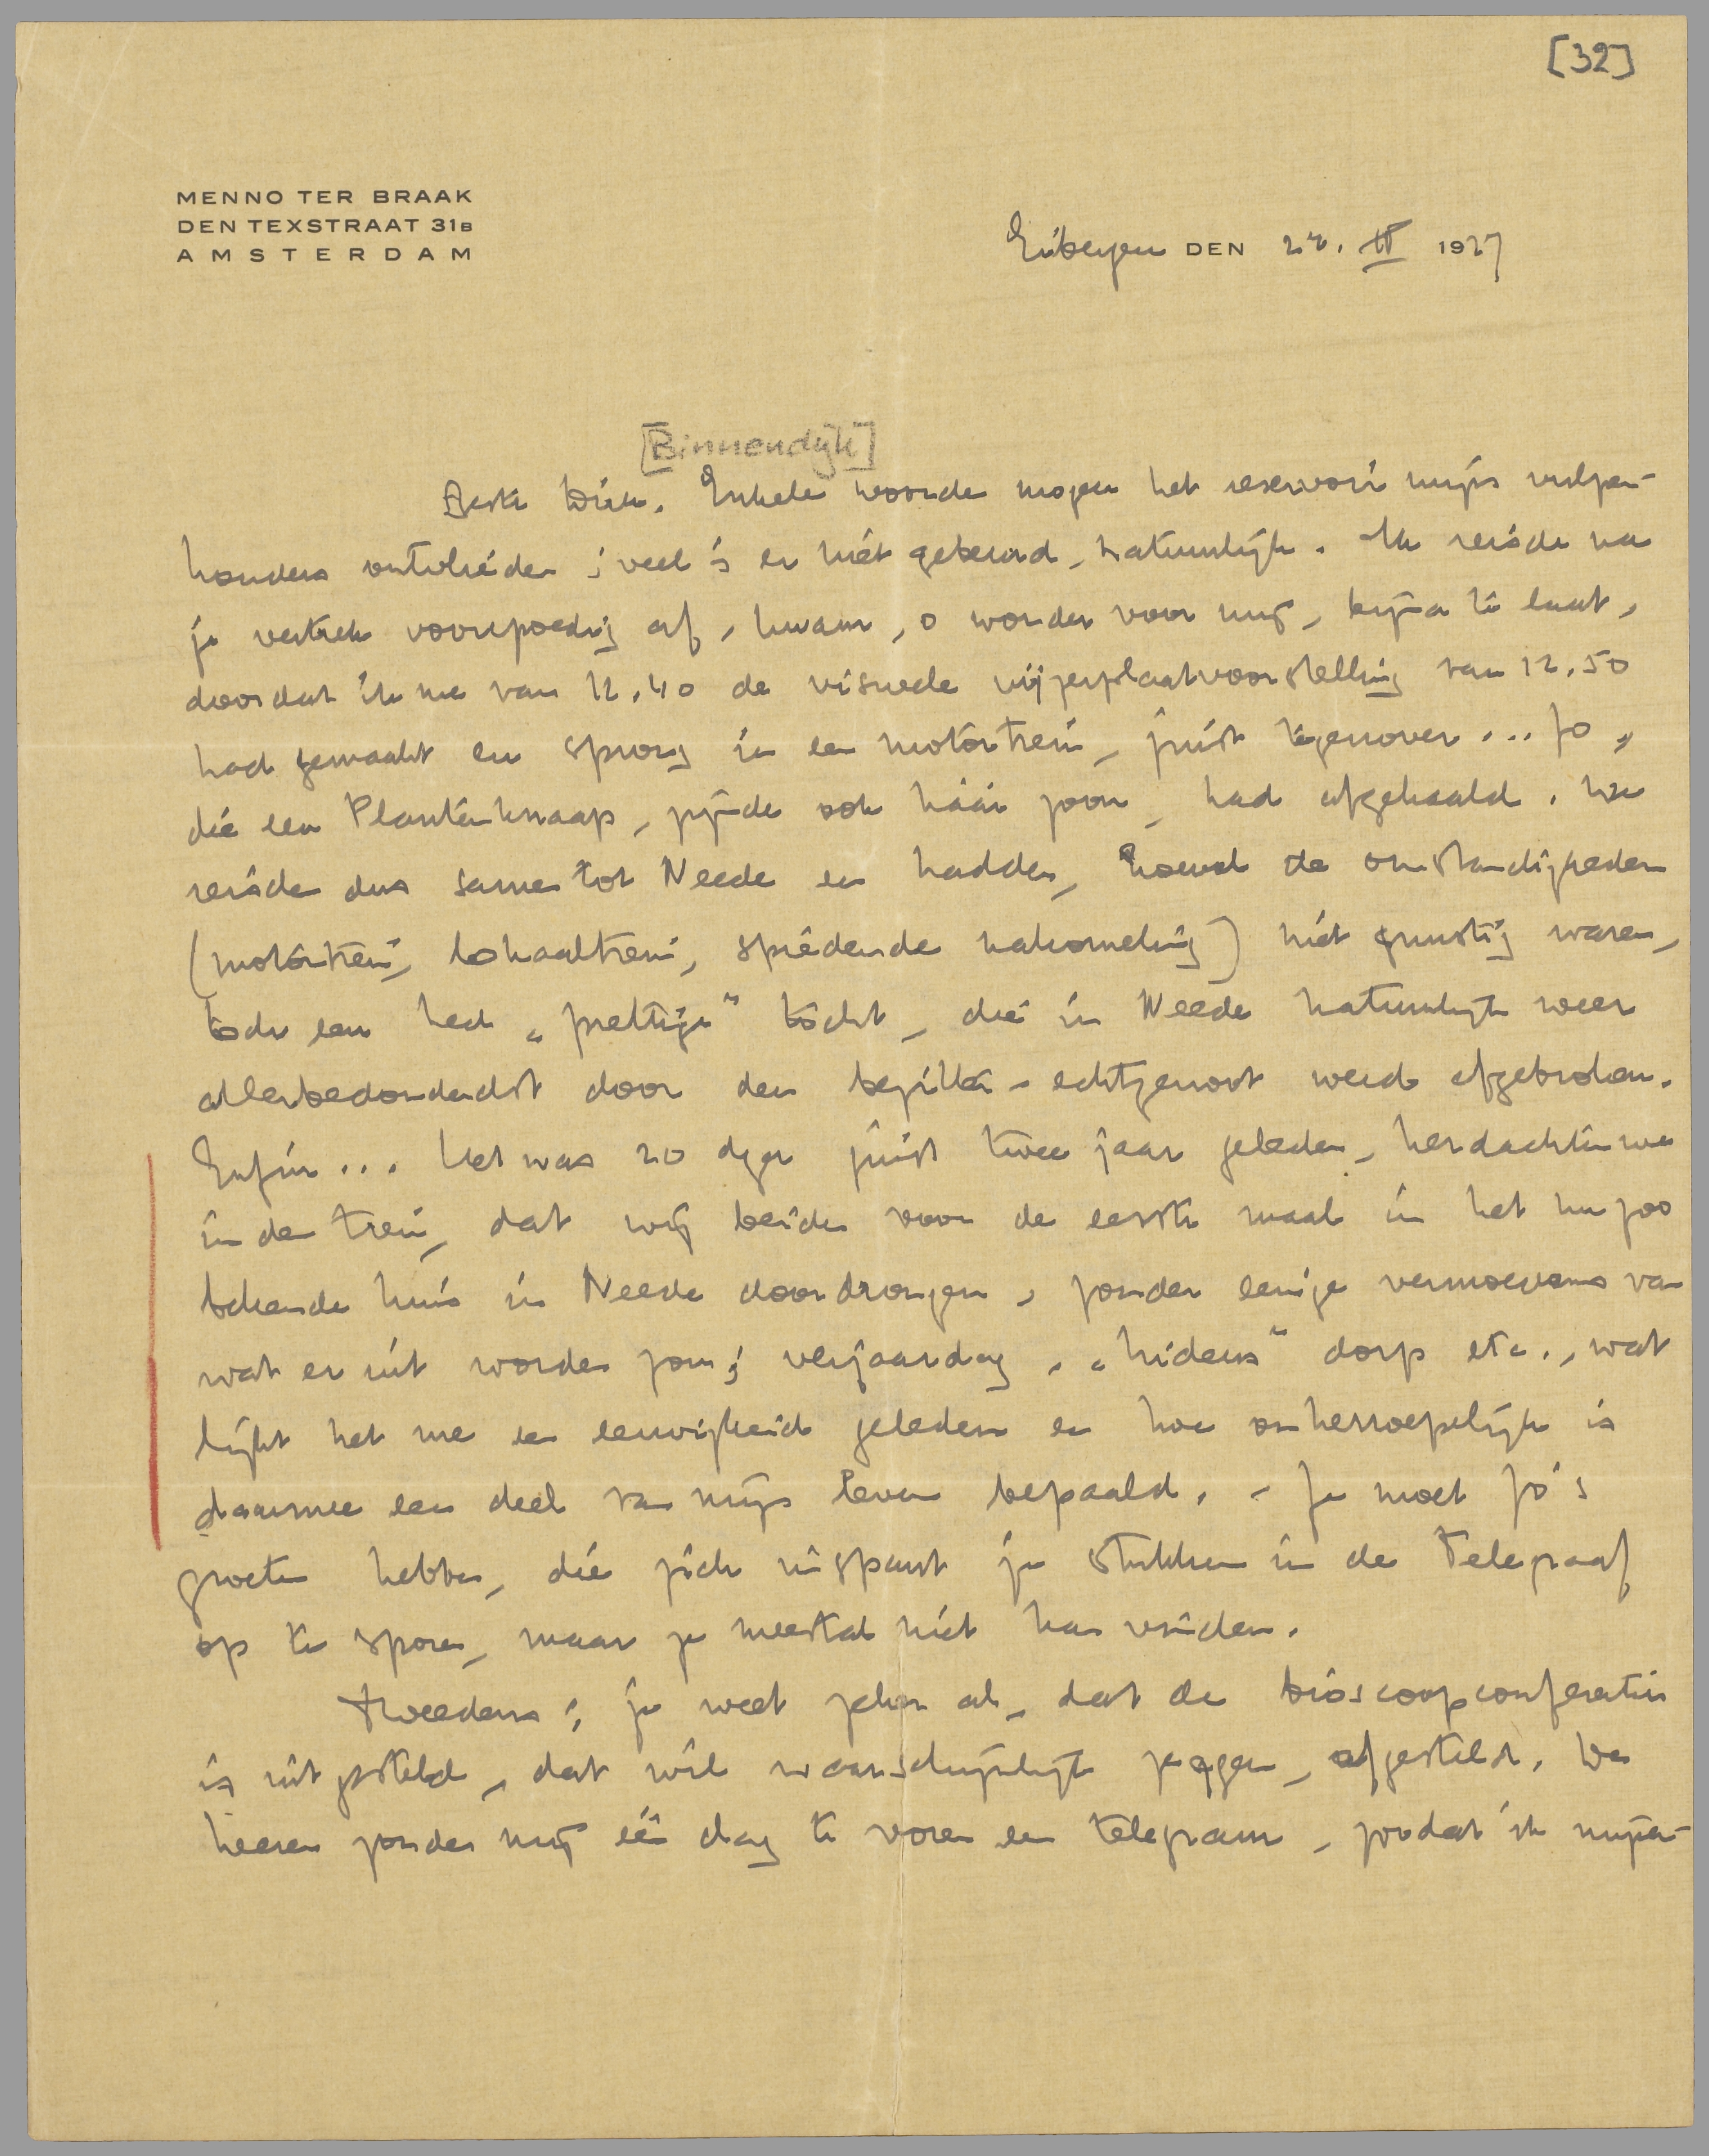 [32]
MENNO TER BRAAK
DEN TEXSTRAAT 31B
AMSTERDAM
Eibergen DEN 1927
[Binnendijk]
Beste Dick. Enkele woorden mogen het reservoir mijns vulpen-
houders ontvlieden; veel is er niet gebeurd, natuurlijk. Ik reisde na
je vertrek voorspoedig af, kwam, o wonder voor mij, bijna te laat,
doordat ik me van 12.40 de visueele wijzerplaatvoorstelling van 12.50
had gemaakt en sprong in een motortrein, juist tegenover... Jo,
die een Plantenknaap, zijnde ook háár zoon, had afgehaald. We
reisden dus samen tot Neede en hadden, hoewel de omstandigheden
(motortrein, lokaaltrein, nakomeling) niet gunstig waren,
toch een heel "prettige" tocht, die in Neede natuurlijk weer
allerbedonderdst door den bezitter-echtgenoot werd afgebroken.
Enfin... Het was zoo juist twee jaar geleden, herdachten we
in den trein, dat wij beiden voor de eerste maal in het nu zoo
bekende huis in Neede doordrongen, zonder eenige vermoedens van
wat er uit worden zou; verjaardag, dorp etc., wat
lijkt het me een eeuwigheid geleden en hoe onherroepelijk is
daarmee een deel van mijn leven bepaald. - Je moet Jo's
groeten hebben, die zich inspant je stukken in de Telegraaf
op te sporen, maar ze meestal niet kan vinden.
Tweedens; je weet zeker al, dat de bioscoopconferentie
is uitgesteld, dat wil waarschijnlijk zeggen, afgesteld. De
heeren zonden mij één dag te voren een telegram, zoodat ik mijn